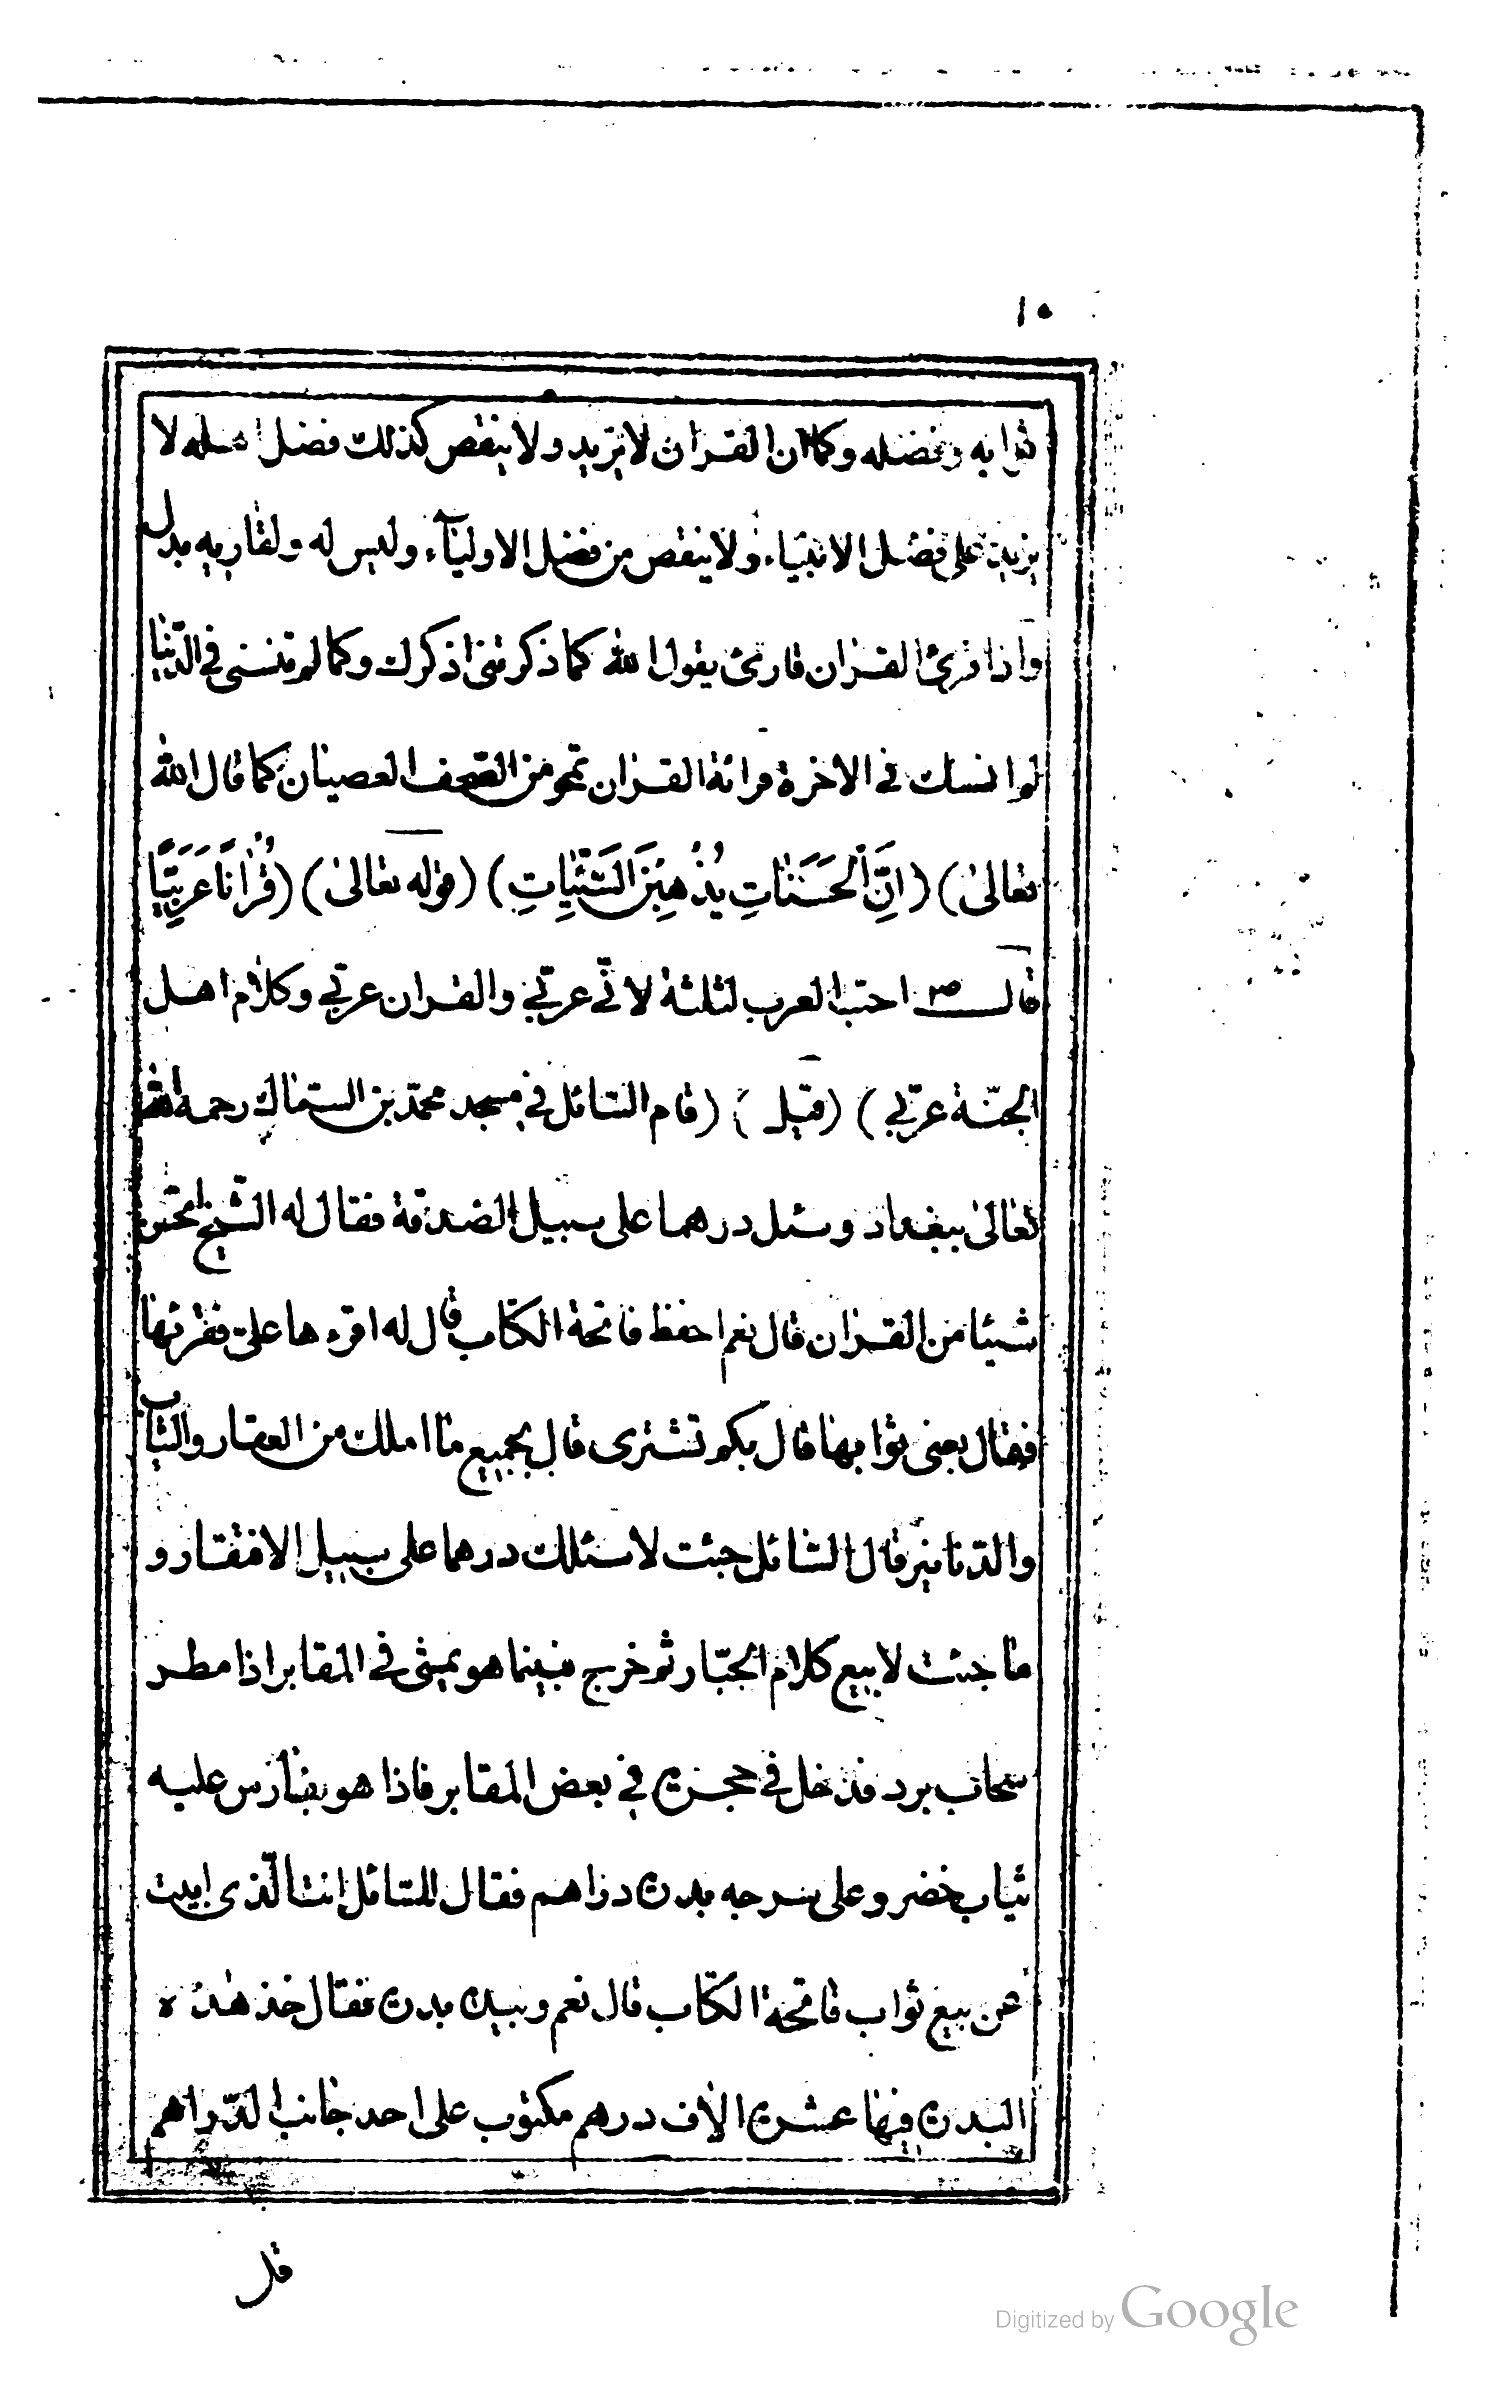 ١٠
ثوابه وفضله وكما ان القران لا يزيد ولا ينقص كذلك فضل اهله لا
يزيد على فضل الانبياء ولا ينقص من فضل الاولياء وليس له ولقاريه بدل
واذا قرئ القران قارئ يقول الله كما ذكرتنى اذكرك وكما لم تنسنى فى الدّنيا
لم انسك فى الاخرة قرائة القران تمحو من الصّحف العصيان كما قال الله
تعالى) (اِنَّ الْحَسَنَاتِ يُذْهِبْنَ السَّيِّئَاتِ) (قوله تعالى) (قُرْاٰنًا عَرَبِيًّا
قال ص احبّ العرب لثلثة لانّى عربّى والقران عربّى وكلام اهل
الجنّة عربّى) (قيل) (قام السّائل فى مسجد محمّد بن السمّاك رحمه الله
تعالى ببغداد وسئل درهما على سبيل الصّدقة فقال له الشّيخ اتحسن
شيئا من القران قال نعم احفظ فاتحة الكتاب قال له اقرءها علىّ فقرئها
فقال بعنى ثوابها قال بكم تشترى قال بجميع ما املك من العقار والثياب
والدّنانير قال السّائل جئت لاسئلك درهما على سبيل الافتقار و
ما جئت لابيع كلام الجبّار ثم خرج فبينما هو يمشى فى المقابر اذا مطر
سحاب برد فدخل فى حجرة فى بعض المقابر فاذا هو بفارس عليه
ثياب خضر وعلى سرجه بدرة دراهم فقال للسّائل انت الّذى ابيت
عن بيع ثواب فاتحة الكتاب قال نعم وبيده بدرة فقال خذ هذه
البدرة فيها عشرة الاف درهم مكتوب على احد جانب الدّراهم
قل
Digitized by Google